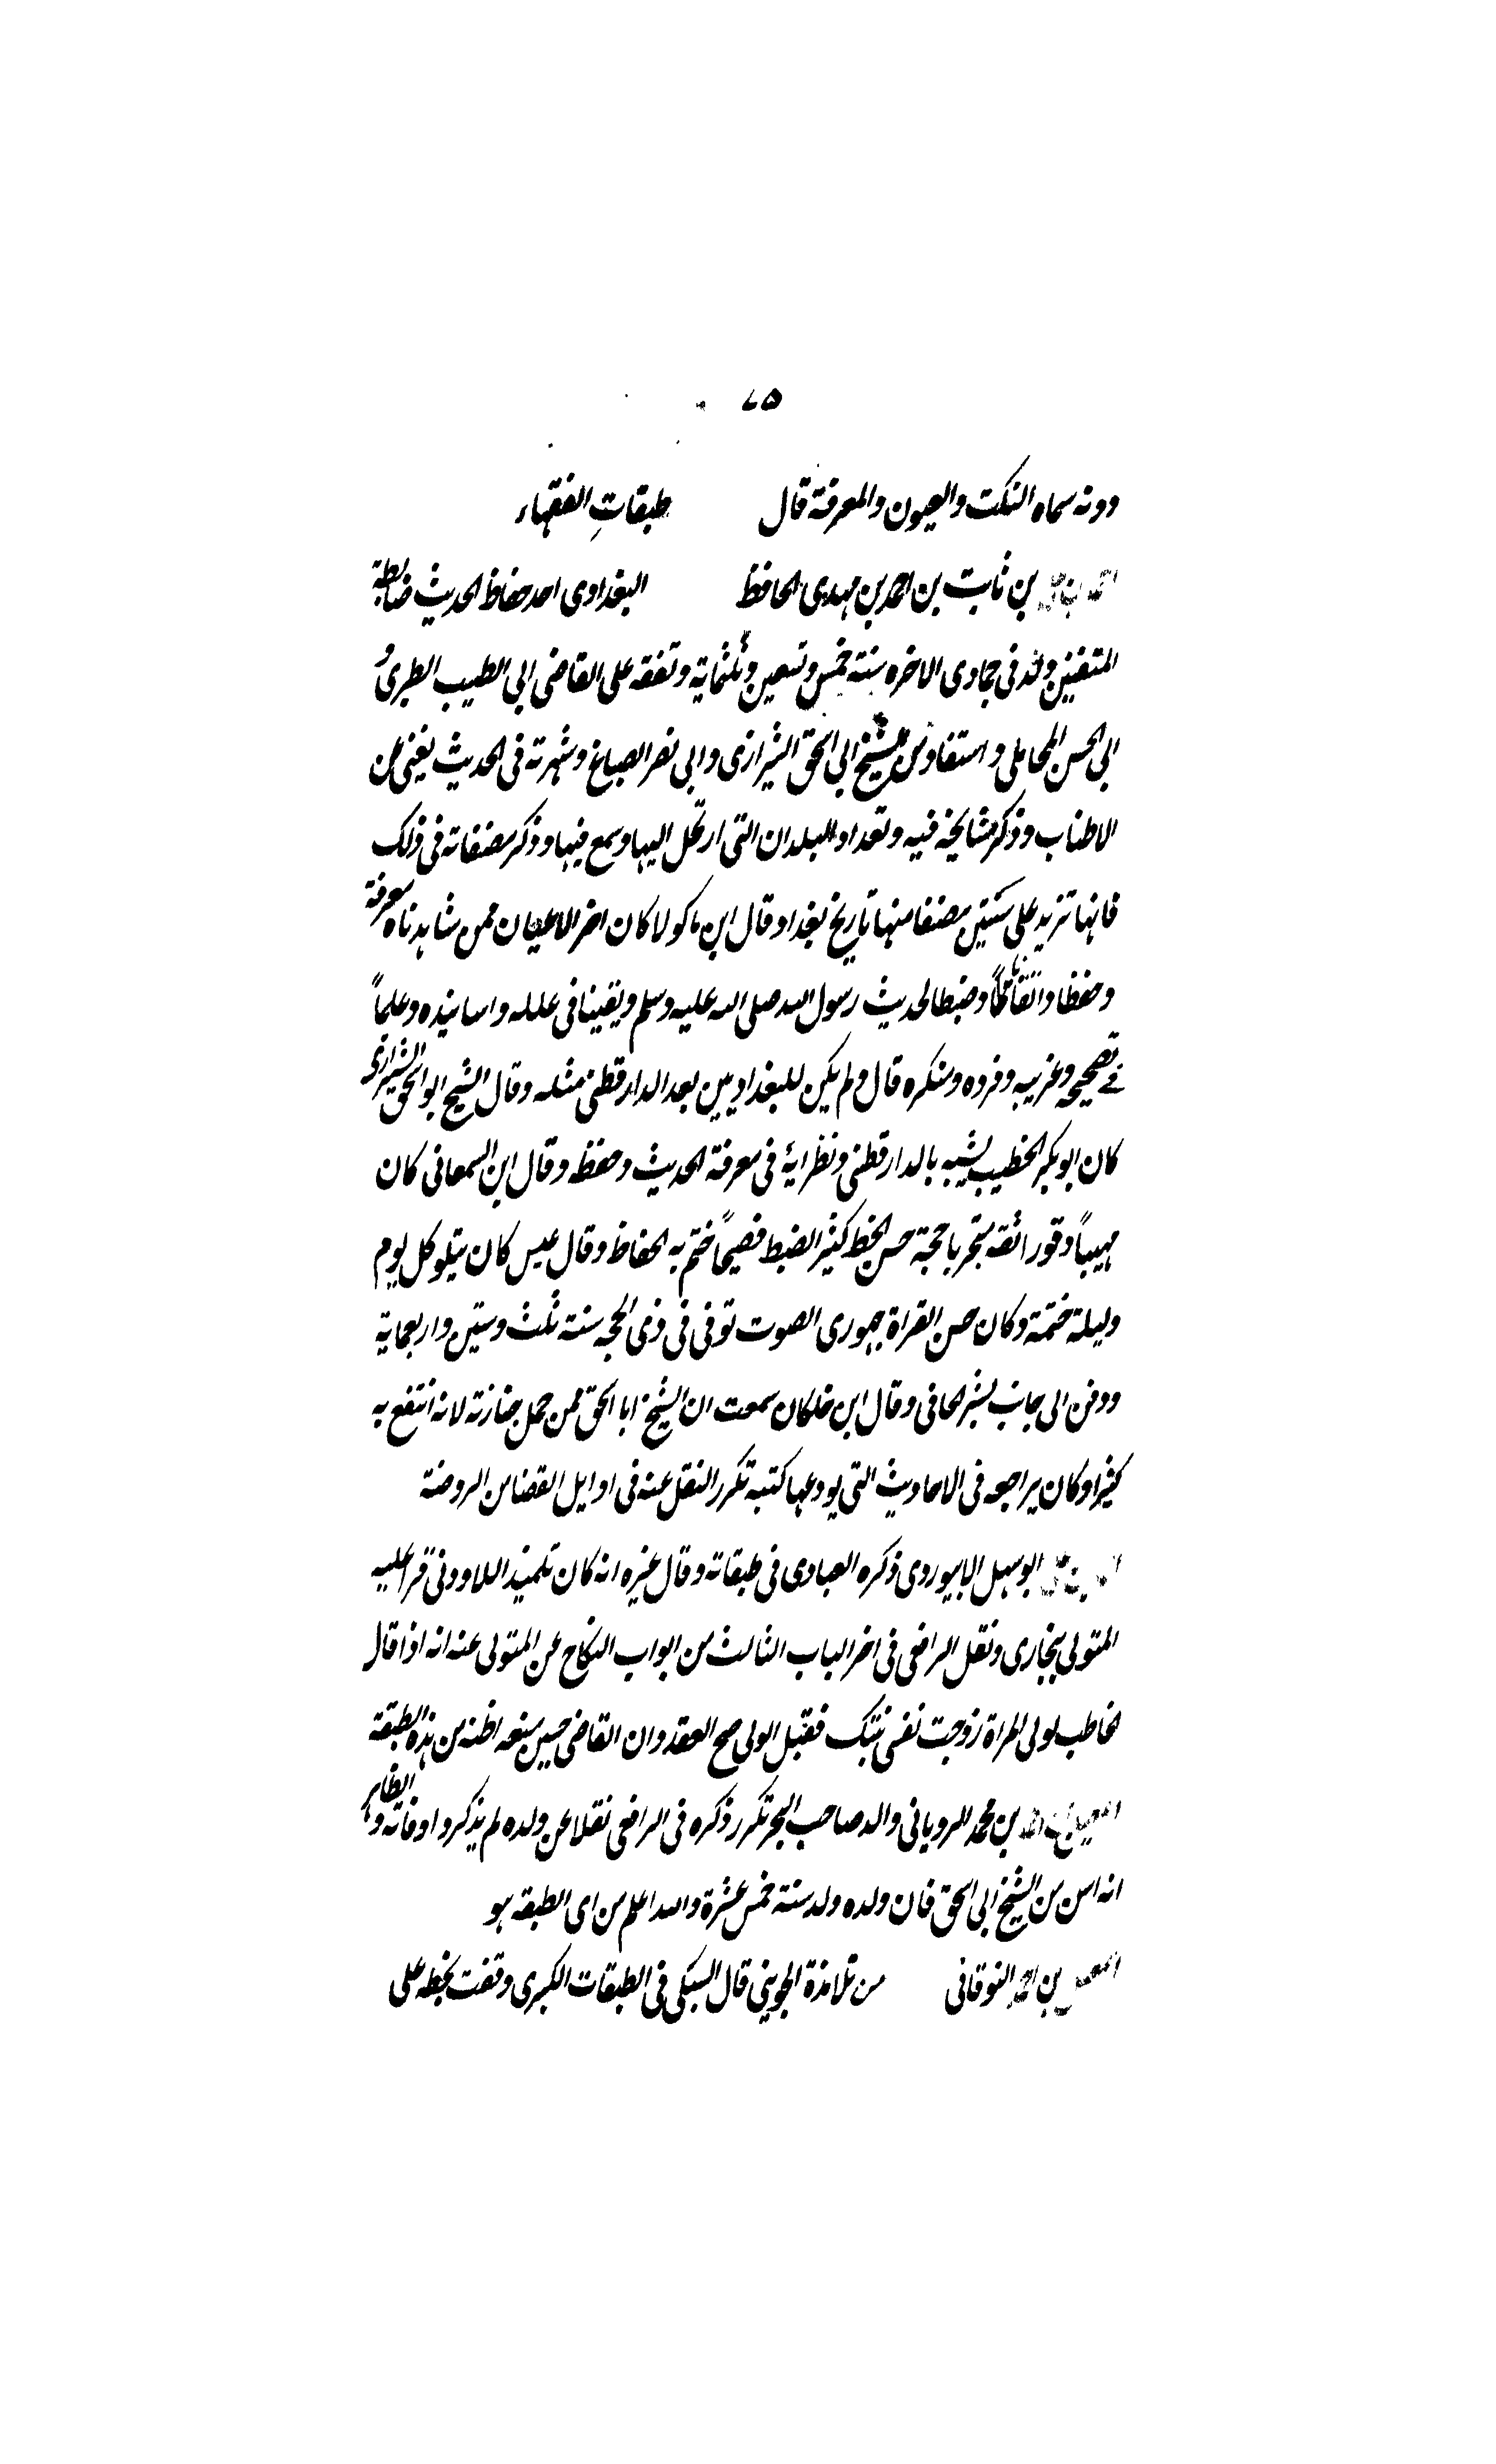 ۷۵
ودونه سماه النكت والعيون والمعرفة قال طبقاتِ الفقهاء
بن ثابت بن احمد بن مهدى الحافظ البغدادى احد حفاظ الحديث ضابطة
المتقنين ولد فى جمادى الاخره سنة خمس وتسعين وثلثماية وتفقه على القاضى ابى الطيب الطبرى و
ابى الحسن المحاملى واستفاد من الشيخ ابى اسحق الشيرازى وابى نصر الصباغ وشهرته فى الحديث يغنى عن
الاطناب وذكر مشايخه فيه وتعداد البلدان التى ارتحل اليها وسمع فيها وذكر مصنفاته فى ذلك
فانها تزيد على ستين مصنفا منها تاريخ بغداد وقال ابن ماكولا كان اخر الاعيان ممن شاهدناه معرفة
وحفظا واتقانا وضبطا لحديث رسول الله صلى الله عليه وسلم ويقينا فى علله واسانيده وعلماً
فى تصحيحه وغريبه وفرده ومنكره قال ولم يكن للبغداديين بعد الدارقطنى مثله وقال الشيخ ابو اسحق الشيرازى
كان ابوبكر الخطيب يشبه بالدارقطنى ونظرايه فى معرفة الحديث وحفظه وقال ابن السمعانى كان
مهيباً وقورا ثقة متحريا حجة حسن الخط كثير الضبط فصيحاً ختم به الحفاظ وقال غيره كان يتلو كل يوم
وليلة ختمة وكان حسن القراة جهورى الصوت توفى فى ذى الحجه سنة ثلث وستين واربعماية
ودفن الى جانب بشر الحافى وقال ابن خلكان سمعت ان الشيخ ابا اسحق ممن حمل جنازته لانه انتفع به
كثيرا وكان يراجعه فى الاحاديث التى يودعها كتبه تكرر النقل عنه فى اوايل القضا من الروضة
ابو سهل الابيوردى ذكره العبادى فى طبقاته وقال غيره انه كان تلميذ الاودنى قرا عليه
المتولى ببخارى ونقل الرافعى فى اخر الباب الثالث من ابواب النكاح عن المتولى عنه انه اذا قال
لخاطب لولى المراة زوجت نفسى بنتك فقبل الولى صح العقد وان القاضى حسين منعه اظنه من هذه الطبقة
بن محمد الرويانى والد صاحب البحر تكرر ذكره فى الرافعى نقلا عن ولده لم يذكروا وفاته والظاهر
انه اسن من الشيخ ابى اسحق فان ولده ولد سنة خمس عشرة والله اعلم من اى الطبقة هو
بن احمد النوقانى من تلامذة الجوينى قال السبكى فى الطبقات الكبرى وقفت بخطه على